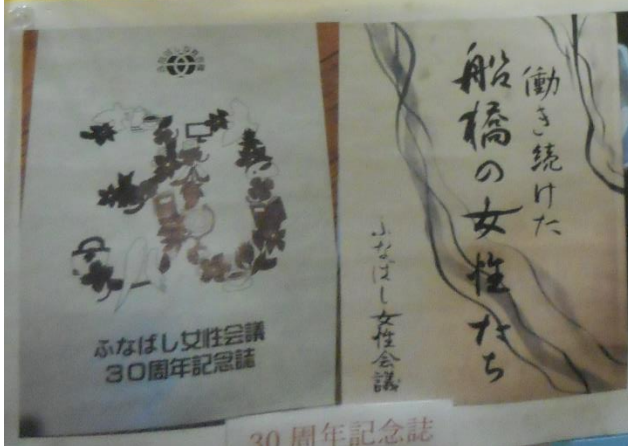 ふなばし女性会議
30周年記念誌
働き続けた
船橋の女性たち
ふなばし女性会議
30周年記念誌